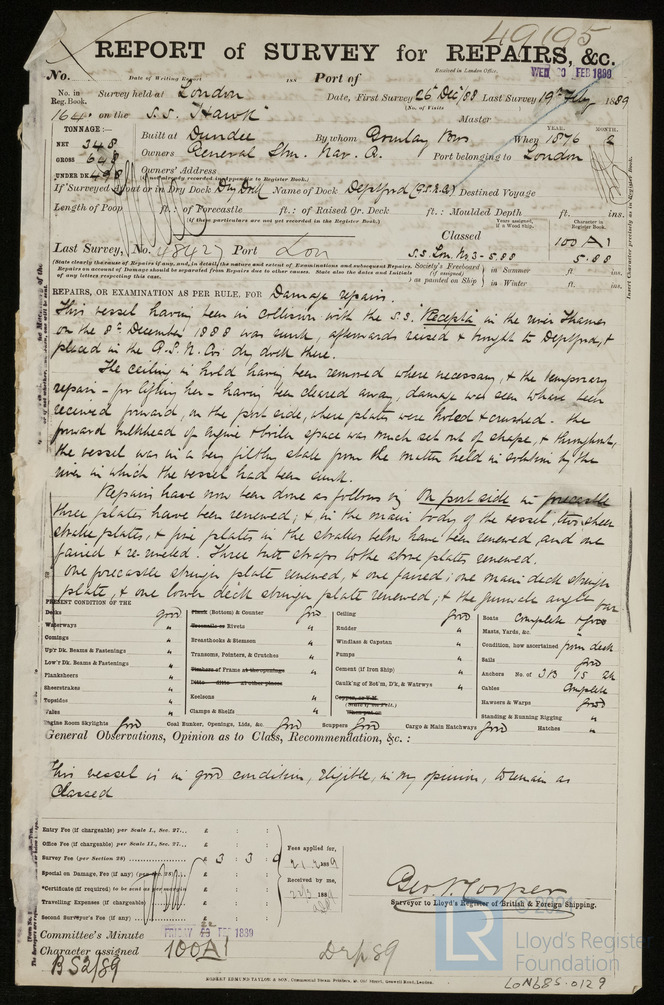 49195
REPORT of SURVEY for REPAIRS, &c.
No. Date of Writing Report 188 Port of Received in London Office, WED 20 FEB 1889
No. in Reg. Book. Survey held at London Date, First Survey 26th Dec/88 Last Survey 19th Feby 1889
(No. of Visits
164 on the S.S. "Hawk" Master
TONNAGE:—
NET 348
GROSS 648
UNDER DK 498
Built at Dundee By whom Gourlay Bros When 1876 YEAR. MONTH. 2
Owners General Stm. Nav. Co. Port belonging to London
Owners' Address
(If not already recorded in Appendix to Register Book.)
If Surveyed Afloat or in Dry Dock Dry Dock Name of Dock Deptford (G.S.N.Co) Destined Voyage
Length of Poop ft.: of Forecastle ft.: of Raised Qr. Deck ft.: Moulded Depth ft. ins.
(If these particulars are not yet recorded in the Register Book.)
Last Survey, No. 48427 Port Lon
Classed
S.S. Lon. No 3-5.88
Character in Register Book.
100 A1
5.88
Society's Freeboard (if assigned) as painted on Ship in Summer ft. ins.
in Winter ft. ins.
Insert Character precisely as in Register Book.
(State clearly the cause of Repairs if any, and, in detail, the nature and extent of Examinations and subsequent Repairs. Repairs on account of Damage should be separated from Repairs due to other causes. State also the dates and Initials of any letters respecting this case.
REPAIRS, OR EXAMINATION AS PER RULE, FOR Damage repairs.
This vessel having been in collision with the S.S. "Recepta" in the river Thames
on the 8th December 1888 was sunk, afterwards raised & brought to Deptford, &
placed in the G.S.N. Cos dry dock there.
The ceiling in hold having been removed where necessary, & the temporary
repair - for lifting her - having been cleared away, damage was seen where been
received forward, on the port side, where plates were holed & crushed. The
forward bulkhead of engine & boiler space was much set out of shape, & throughout,
the vessel was in a very filthy state from the matter held in solution by the
river in which the vessel had been sunk.
Repairs have now been done as follows viz. On port side in forecastle
three plates have been renewed; & in the main body of the vessel, two sheer
strake plates, & five plates in the strakes below have been renewed, and one
faired & re-riveted. Three butt straps to the above plates renewed.
One forecastle stringer plate renewed, & one faired; one main deck stringer
plate, & one lower deck stringer plate renewed; & the gunwale angle bar
PRESENT CONDITION OF THE
Decks good
Waterways "
Comings "
Up'r Dk. Beams & Fastenings "
Low'r Dk. Beams & Fastenings "
Planksheers "
Sheerstrakes "
Topsides "
Wales "
Plank (Bottom) & Counter good
Treenails or Rivets "
Breasthooks & Stemson "
Transoms, Pointers, & Crutches "
Timbers of Frame at the openings "
Ditto ditto at other places
Keelsons "
Clamps & Shelfs "
Ceiling Good
Rudder "
Windlass & Capstan "
Pumps "
Cement (if Iron Ship) "
Caulk'ng of Bot'm, D'k, & Watrwys "
Copper, or Y.M.
(State if on Felt.)
When put on
Boats Complete & good
Masts, Yards, &c. "
Condition, how ascertained from deck
Sails good
Anchors No. of 3B 1S 2K
Cables Complete
Hawsers & Warps Good
Standing & Running Rigging "
Engine Room Skylights Good Coal Bunker, Openings, Lids, &c. Good Scuppers Good Cargo & Main Hatchways Good Hatches "
General Observations, Opinion as to Class, Recommendation, &c.:
This vessel is in good condition, eligible, in my opinion, to remain as
Classed
Entry Fee (if chargeable) per Scale I., Sec. 27... £ : :
Office Fee (if chargeable) per Scale II., Sec. 27... £ : :
Survey Fee (per Section 28) £ 3 : 3 : 0
Special on Damage, Fee (if any) (per Sec. 28) £ : :
*Certificate (if required) to be sent as per margin
Travelling Expenses (if chargeable) £ : :
Second Surveyor's Fee (if any) £ : :
Fees applied for,
21.2.1889
Received by me,
Geo. N. Cooper
Surveyor to Lloyd's Register of British & Foreign Shipping.
Committee's Minute FRIDAY 22 FEB 1889
Character assigned 100A1
BS 2/89
Drp 89
ROBERT EDMUND TAYLOR & SON, Commercial Steam Printers
© 2021
LR
Lloyd's Register
Foundation
LON685-0129